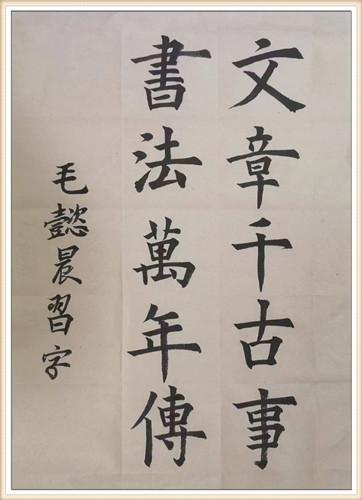 文章千古事
書法萬年傳
毛懿晨習字